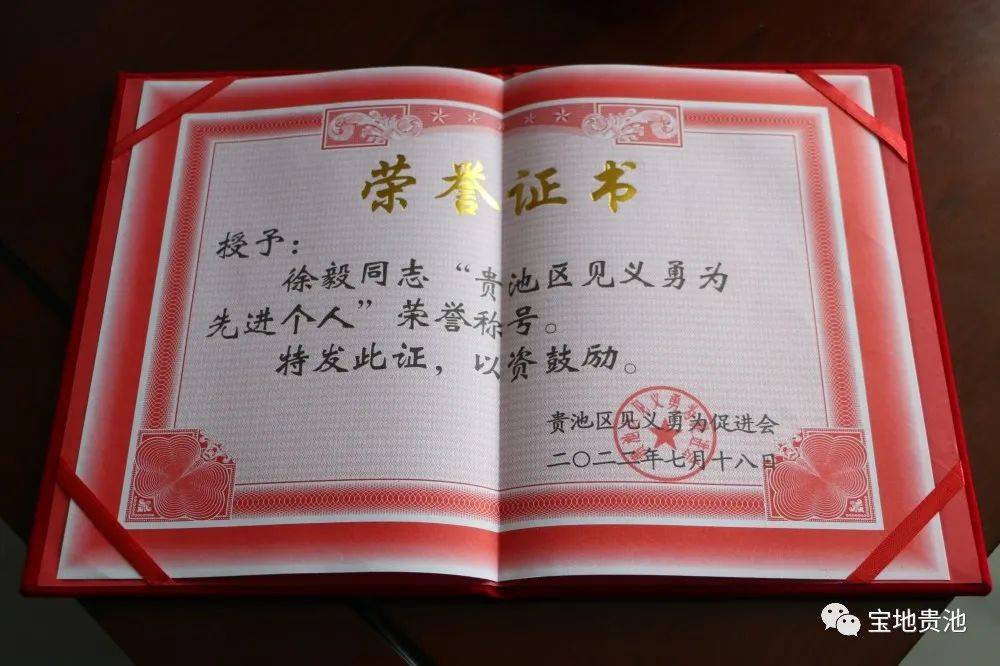 荣誉证书
授予：
徐毅同志“贵池区见义勇为
先进个人”荣誉称号。
特发此证，以资鼓励。
贵池区见义勇为促进会
二〇二二年七月十八日
宝地贵池